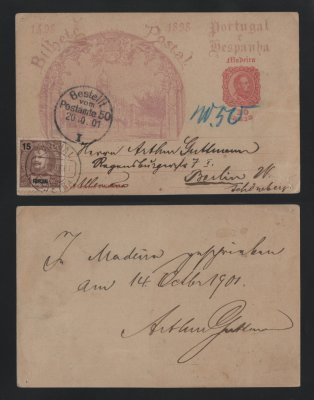 1498 1898
Bilhete Postal
Portugal
e
Hespanha
Madeira
Bestellt
vom
Postamte 50
20.9.01
I
W 50
15
Herrn Arthur Guttmann
Regensburgerstr 7 I.
Berlin W.
Schöneberg
Allemanha
In Madeira geschrieben
am 14 Octber 1901.
Arthur Guttmann